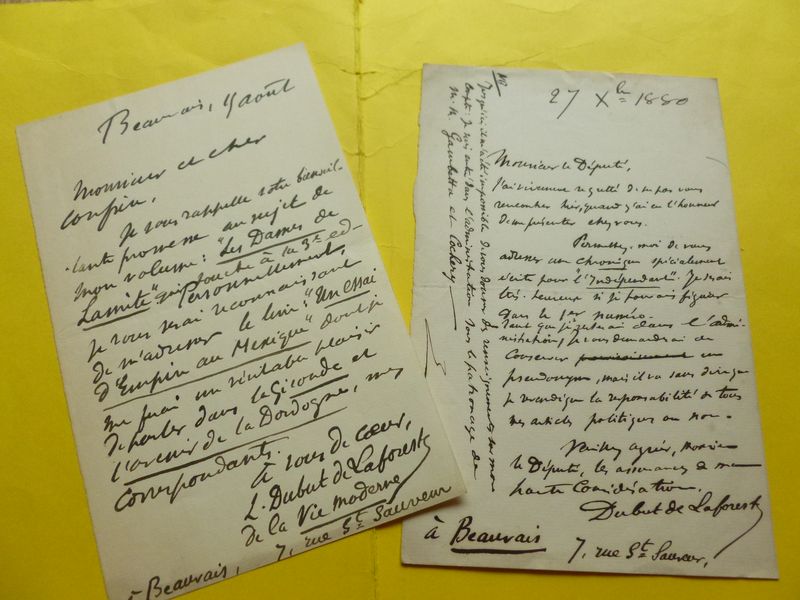 Beauvais, 15 août
Monsieur et cher
confrère,
Je vous rappelle votre bienveil-
lante promesse au sujet de
mon volume: "Les Dames de
Lamète" qui touche à la 3e éd-
Personnellement,
je vous serai reconnaissant
de m'adresser le livre: "Un essai
d'Empire au Mexique" dont je
me ferai un véritable plaisir
de parler dans la Gironde et
l'avenir de la Dordogne, mes
correspondants.
à vous de cœur,
L. Dubut de Laforest
de la Vie moderne
à Beauvais, 7, rue St Sauveur
27 Xbre 1880
Monsieur le Député,
J'ai vivement regretté de ne pas vous
rencontrer hier, quand j'ai eu l'honneur
de me présenter chez vous.
Permettez-moi de vous
adresser une chronique spécialement
écrite pour "l'Indépendant". Je serais
très heureux si je pouvais figurer
dans le 1er numéro.
Tant que je serai dans l'admi-
nistration, je vous demanderai de
conserver un
pseudonyme, mais il va sans dire que
je revendique la responsabilité de tous
mes articles politiques ou non.
Veuillez agréer, Monsieur
le Député, les assurances de ma
haute considération.
Dubut de Laforest
à Beauvais 7, rue St Sauveur,
NB
Jusqu'ici il m'a été impossible de vous donner des renseignements sur mon
compte. Je suis entré dans l'administration sous le patronage de
M.M. Gambetta et Cochery